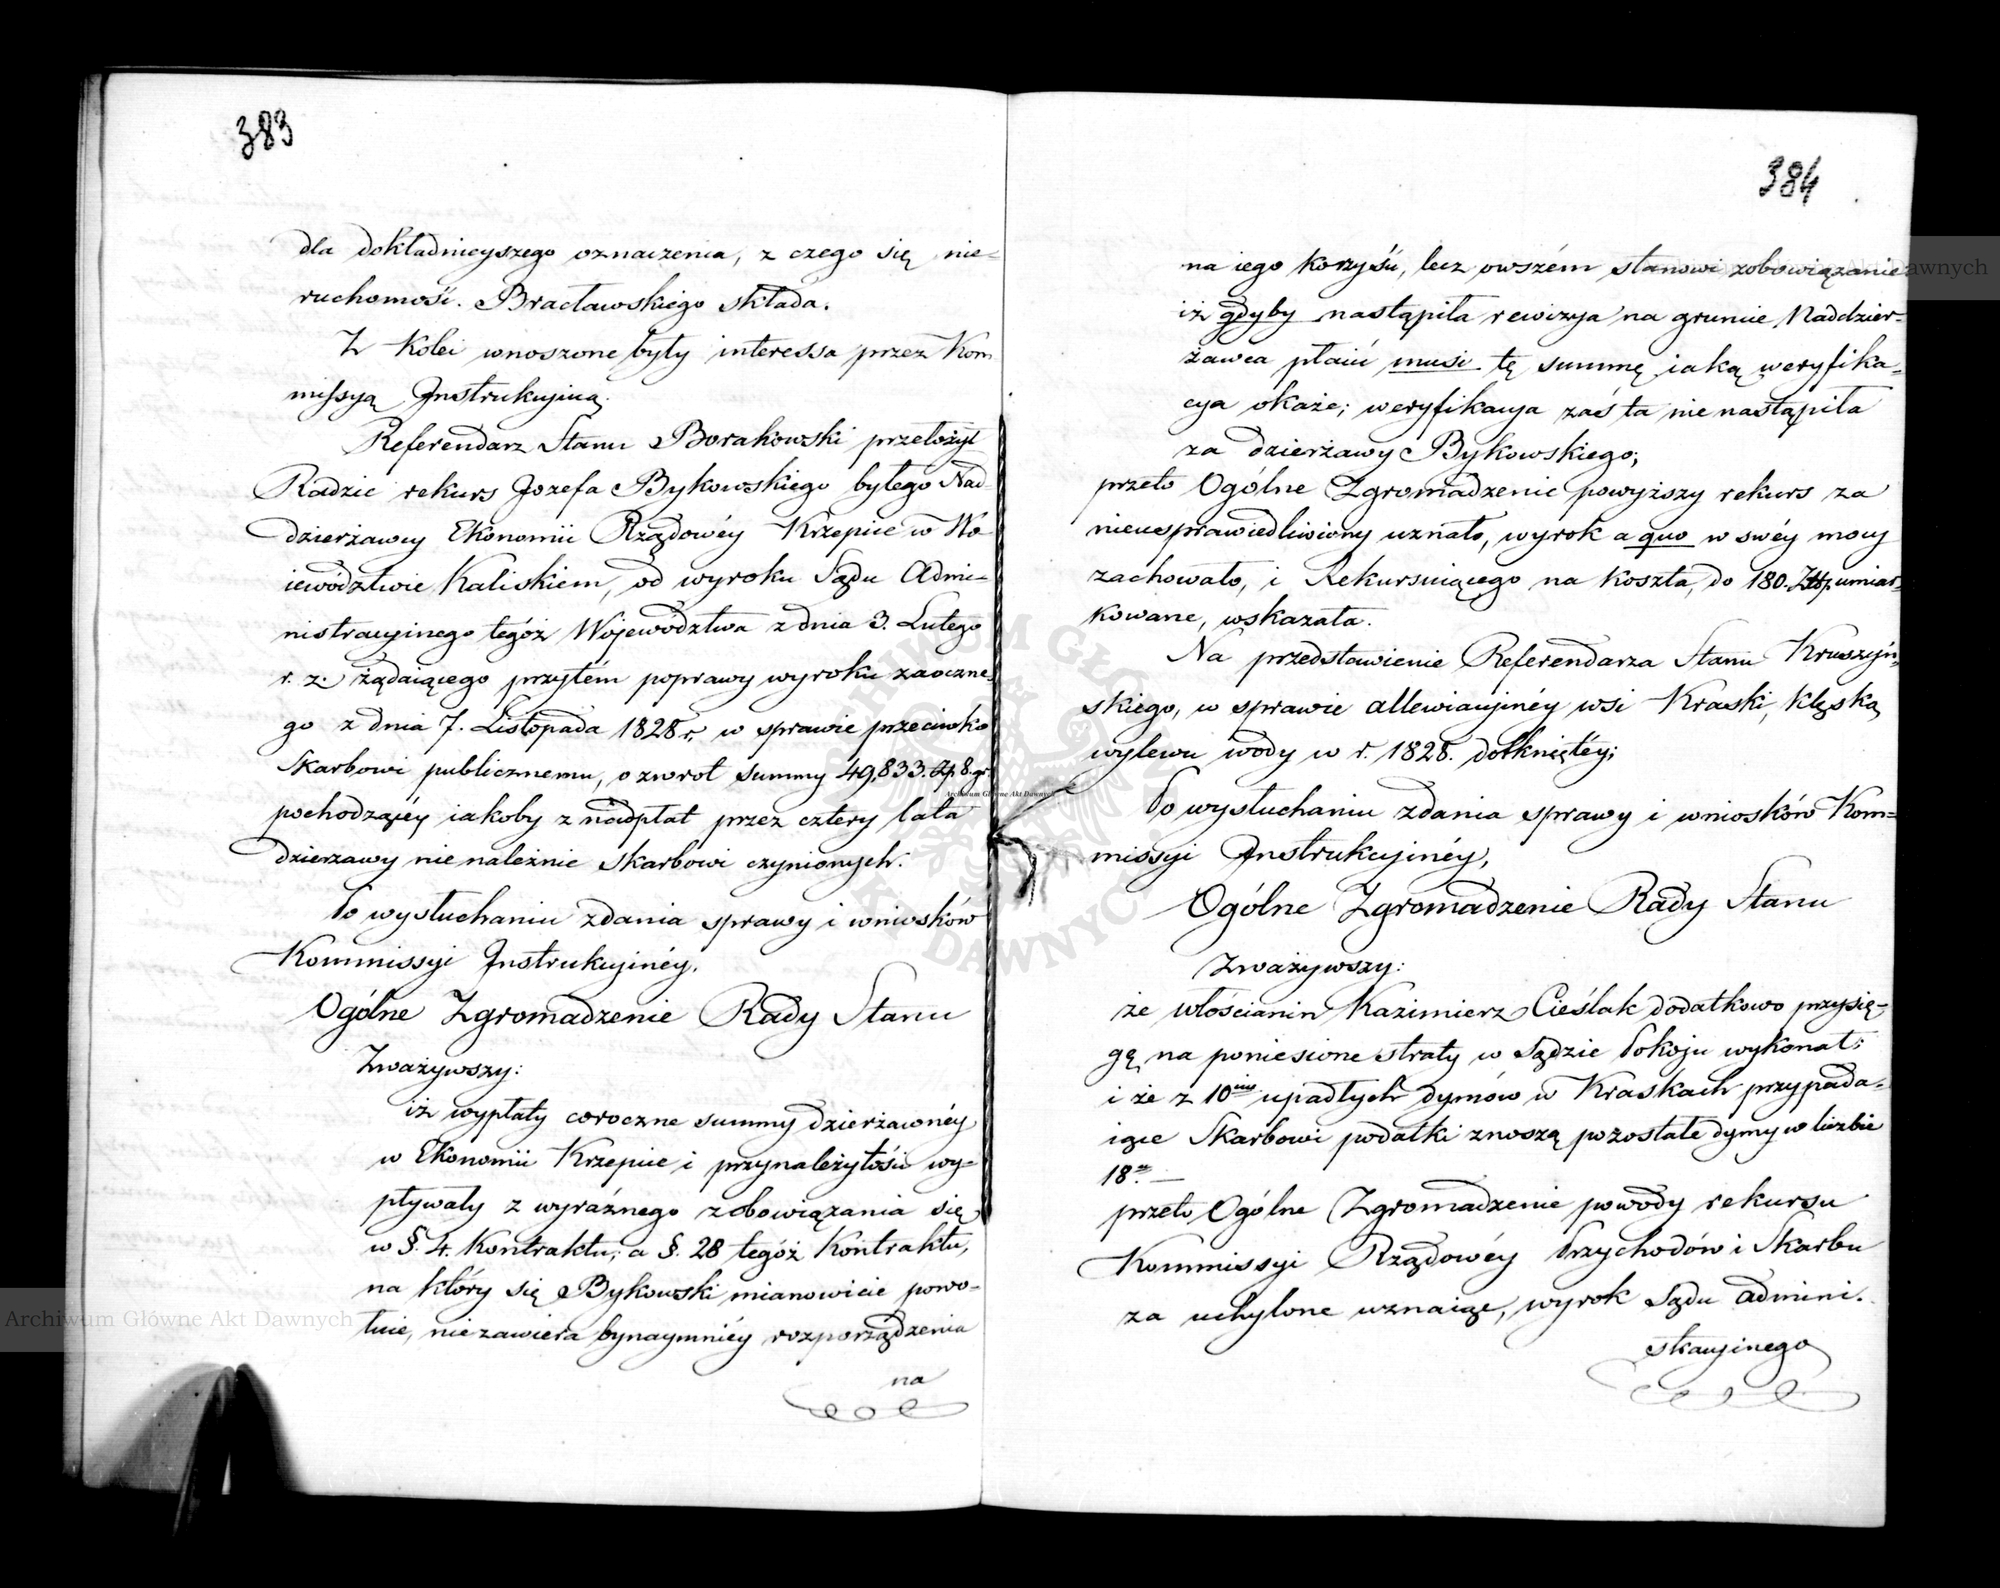 383
dla dokładnieyszego oznaczenia, z czego się nie-
ruchomość Bracławskiego składa.
Z kolei wnoszone były interessa przez Kom
missyą Instrukcyiną.
Referendarz Stanu Borakowski przełożył
Radzie rekurs Jozefa Bykowskiego byłego Nad-
dzierżawcy Ekonomii Rządowéy Krzepice w Wo-
iewództwie Kaliskiem, od wyroku Sądu Admi-
nistracyinego tegóż Województwa z dnia 3. Lutego
r. z. żądaiącego przytém poprawy wyroku zaoczne-
go z dnia 7. Listopada 1828 r, w sprawie przeciwko
Skarbowi publicznemu, o zwrot summy 49,833. Zp 8. gr.
pochodzącéy iakoby z nadpłat przez cztery lata
dzierżawy nienależnie Skarbowi czynionych.
Po wysłuchaniu zdania sprawy i wniosków
Kommissyi Instrukcyinéy,
Ogólne Zgromadzenie Rady Stanu
Zważywszy:
iż wypłaty coroczne summy dzierżawnéy
w Ekonomii Krzepice i przynależytości wy-
pływały z wyraźnego zobowiązania się
w §. 4. Kontraktu; a §. 28 tegóż Kontraktu,
na który się Bykowski mianowicie powo-
łuie, niezawiera bynaymniéy rozporządzenia
na
384
na iego korzyść, lecz owszém stanowi zobowiązanie
iż gdyby nastąpiła rewizya na gruncie Naddzier-
żawca płacić musi tę summę iaką weryfika-
cya okaże; weryfikacya zaś ta nie nastąpiła
za dzierżawy Bykowskiego;
przeto Ogólne Zgromadzenie powyższy rekurs za
nieusprawiedliwiony uznało, wyrok a quo w swéy mocy
zachowało, i Rekursuiącego na koszta, do 180. Złtp. umiar-
kowane, wskazała.
Na przedstawienie Referendarza Stanu Kruszyń-
skiego, w sprawie allewiacyinéy wsi Kraski, klęską
wylewu wody w r. 1828. dotkniętéy;
Po wysłuchaniu zdania sprawy i wniosków Kom-
missyi Instrukcyinéy,
Ogólne Zgromadzenie Rady Stanu
Zważywszy:
że włościanin Kazimierz Cieślak dodatkowo przysię-
gę na poniesione straty w Sądzie Pokoju wykonał;
i że z 10ciu upadłych dymów w Kraskach przypada-
iące Skarbowi podatki znoszą pozostałe dymy w liczbie
18.
przeto Ogólne Zgromadzenie powody rekursu
Kommissyi Rządowéy Przychodów i Skarbu
za uchylone uznaiąc, wyrok Sądu admini.
stracyinego
Archiwum Główne Akt Dawnych
Archiwum Główne Akt Dawnych